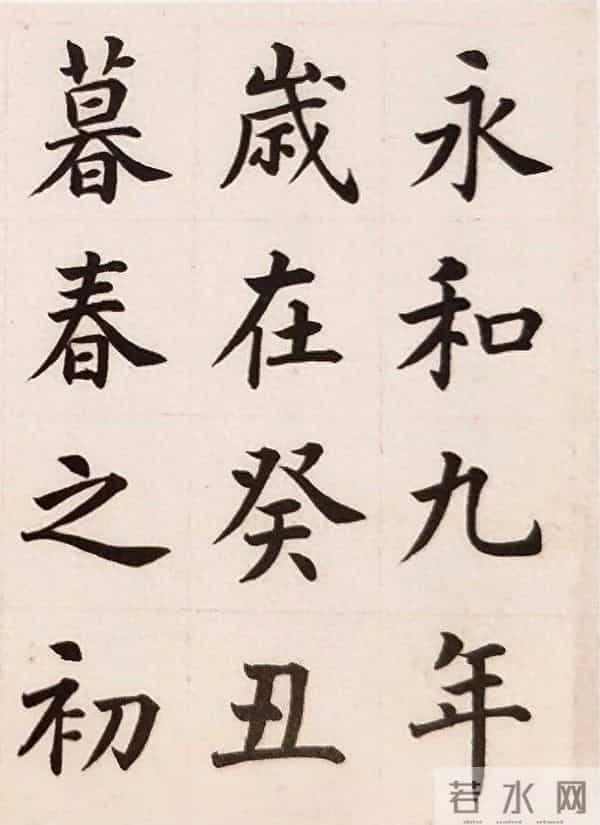 永和九年
歲在癸丑
暮春之初
若水网